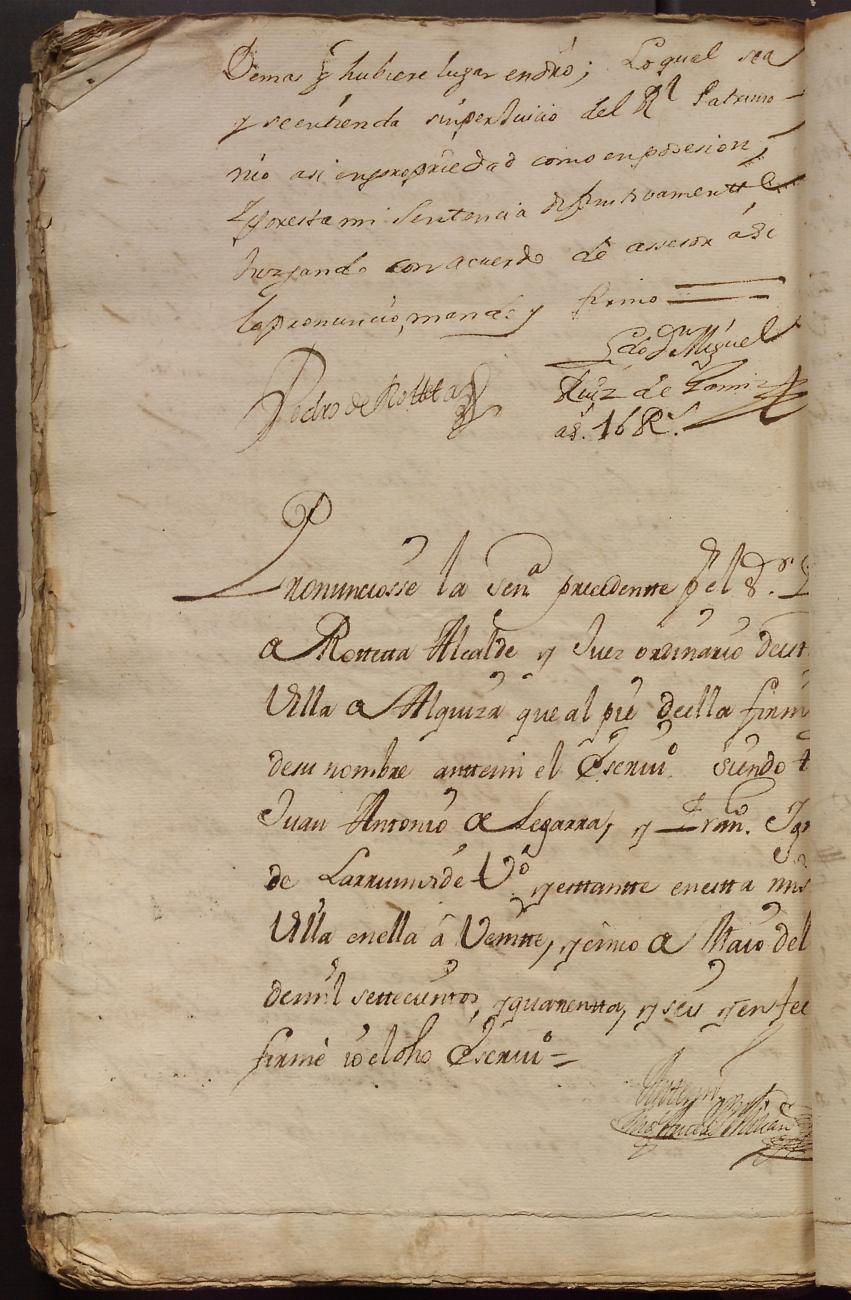 Demas q̃ hubiere lugar endr̃o; Lo qual sea
y se entienda sinperJuicio del Rˡ Patrimo-
nio asi enpropriedad como enposesion,
Y poresta mi Sentencia difinitivamentte
Juzgando con acuerdo de assesor asi
lapronuncio, mando y firmo
Lᵈᵒ Dⁿ Miguel
Pedro de Rottetta Ruiz de
as. 16 Rˢ.
Pronunciosse la Senª precedentte p̃ el S.ʳ
de Rottetta Alcalde y Juez ordinario deest
Villa de Alquiza que al pie deella firm
desu nombre anttemi el Escriuº. siendo t
Juan Antonio de Legarra, y Franᶜº. Ig
de Larrumide Vº, yestantte enestta mis
Villa enella â Veintte, ycinco de Maio del
demil settecientos, yquarentta, y seis yenfee
firmè io el dho Escriuº =